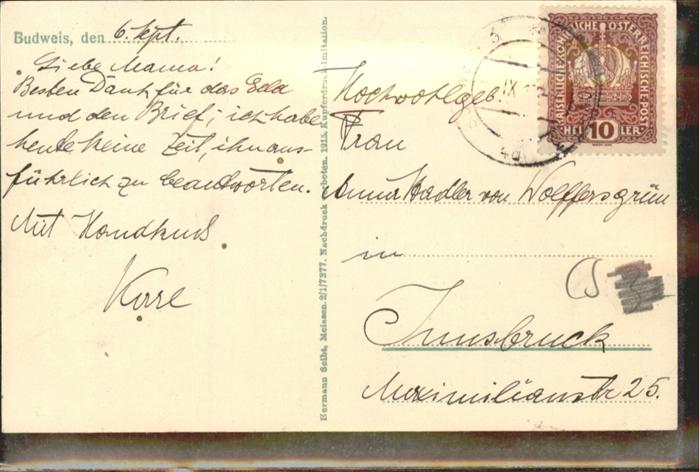 Budweis, den 6. Sept.
Liebe Mama!
Besten Dank für das Geld
und den Brief; ich habe
heute keine Zeit, ihn aus-
führlich zu beantworten.
Mit Handkuss
Hermann Seibt, Meissen. 2/1/7377. Nachdruck verboten. 1915. Kupferdruck-Imitation.
KAISERLICHE KÖNIGLICHE ÖSTERREICHISCHE POST
HELLER 10
IX
Hochwohlgeb.
Frau
Anna Hadler von Wolffersgrün
in
Innsbruck
Maximilianstr 25.